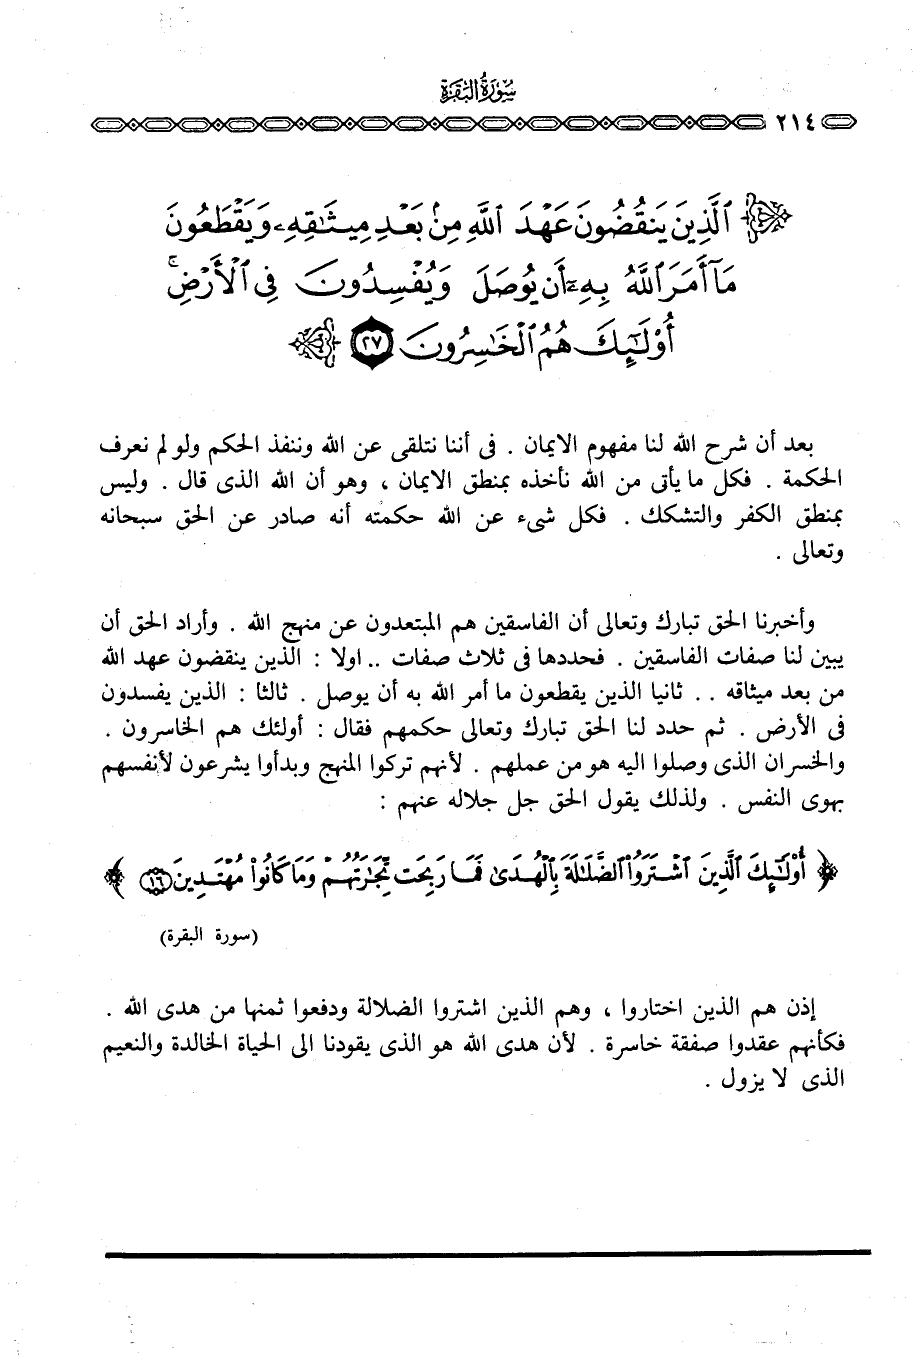 سورة البقرة
٢١٤
ٱلَّذِينَ يَنقُضُونَ عَهۡدَ ٱللَّهِ مِنۢ بَعۡدِ مِيثَٰقِهِۦ وَيَقۡطَعُونَ
مَآ أَمَرَ ٱللَّهُ بِهِۦٓ أَن يُوصَلَ وَيُفۡسِدُونَ فِي ٱلۡأَرۡضِۚ
أُوْلَٰٓئِكَ هُمُ ٱلۡخَٰسِرُونَ ٢٧
بعد أن شرح الله لنا مفهوم الايمان . فى أننا نتلقى عن الله وننفذ الحكم ولو لم نعرف
الحكمة . فكل ما يأتى من الله نأخذه بمنطق الايمان ، وهو أن الله الذى قال . وليس
بمنطق الكفر والتشكك . فكل شىء عن الله حكمته أنه صادر عن الحق سبحانه
وتعالى .
وأخبرنا الحق تبارك وتعالى أن الفاسقين هم المبتعدون عن منهج الله . وأراد الحق أن
يبين لنا صفات الفاسقين . فحددها فى ثلاث صفات .. اولا : الذين ينقضون عهد الله
من بعد ميثاقه .. ثانيا الذين يقطعون ما أمر الله به أن يوصل . ثالثا : الذين يفسدون
فى الأرض . ثم حدد لنا الحق تبارك وتعالى حكمهم فقال : أولئك هم الخاسرون .
والخسران الذى وصلوا اليه هو من عملهم . لأنهم تركوا المنهج وبدأوا يشرعون لأنفسهم
بهوى النفس . ولذلك يقول الحق جل جلاله عنهم :
﴿ أُوْلَٰٓئِكَ ٱلَّذِينَ ٱشۡتَرَوُاْ ٱلضَّلَٰلَةَ بِٱلۡهُدَىٰ فَمَا رَبِحَت تِّجَٰرَتُهُمۡ وَمَا كَانُواْ مُهۡتَدِينَ ١٦ ﴾
(سورة البقرة)
إذن هم الذين اختاروا ، وهم الذين اشتروا الضلالة ودفعوا ثمنها من هدى الله .
فكأنهم عقدوا صفقة خاسرة . لأن هدى الله هو الذى يقودنا الى الحياة الخالدة والنعيم
الذى لا يزول .